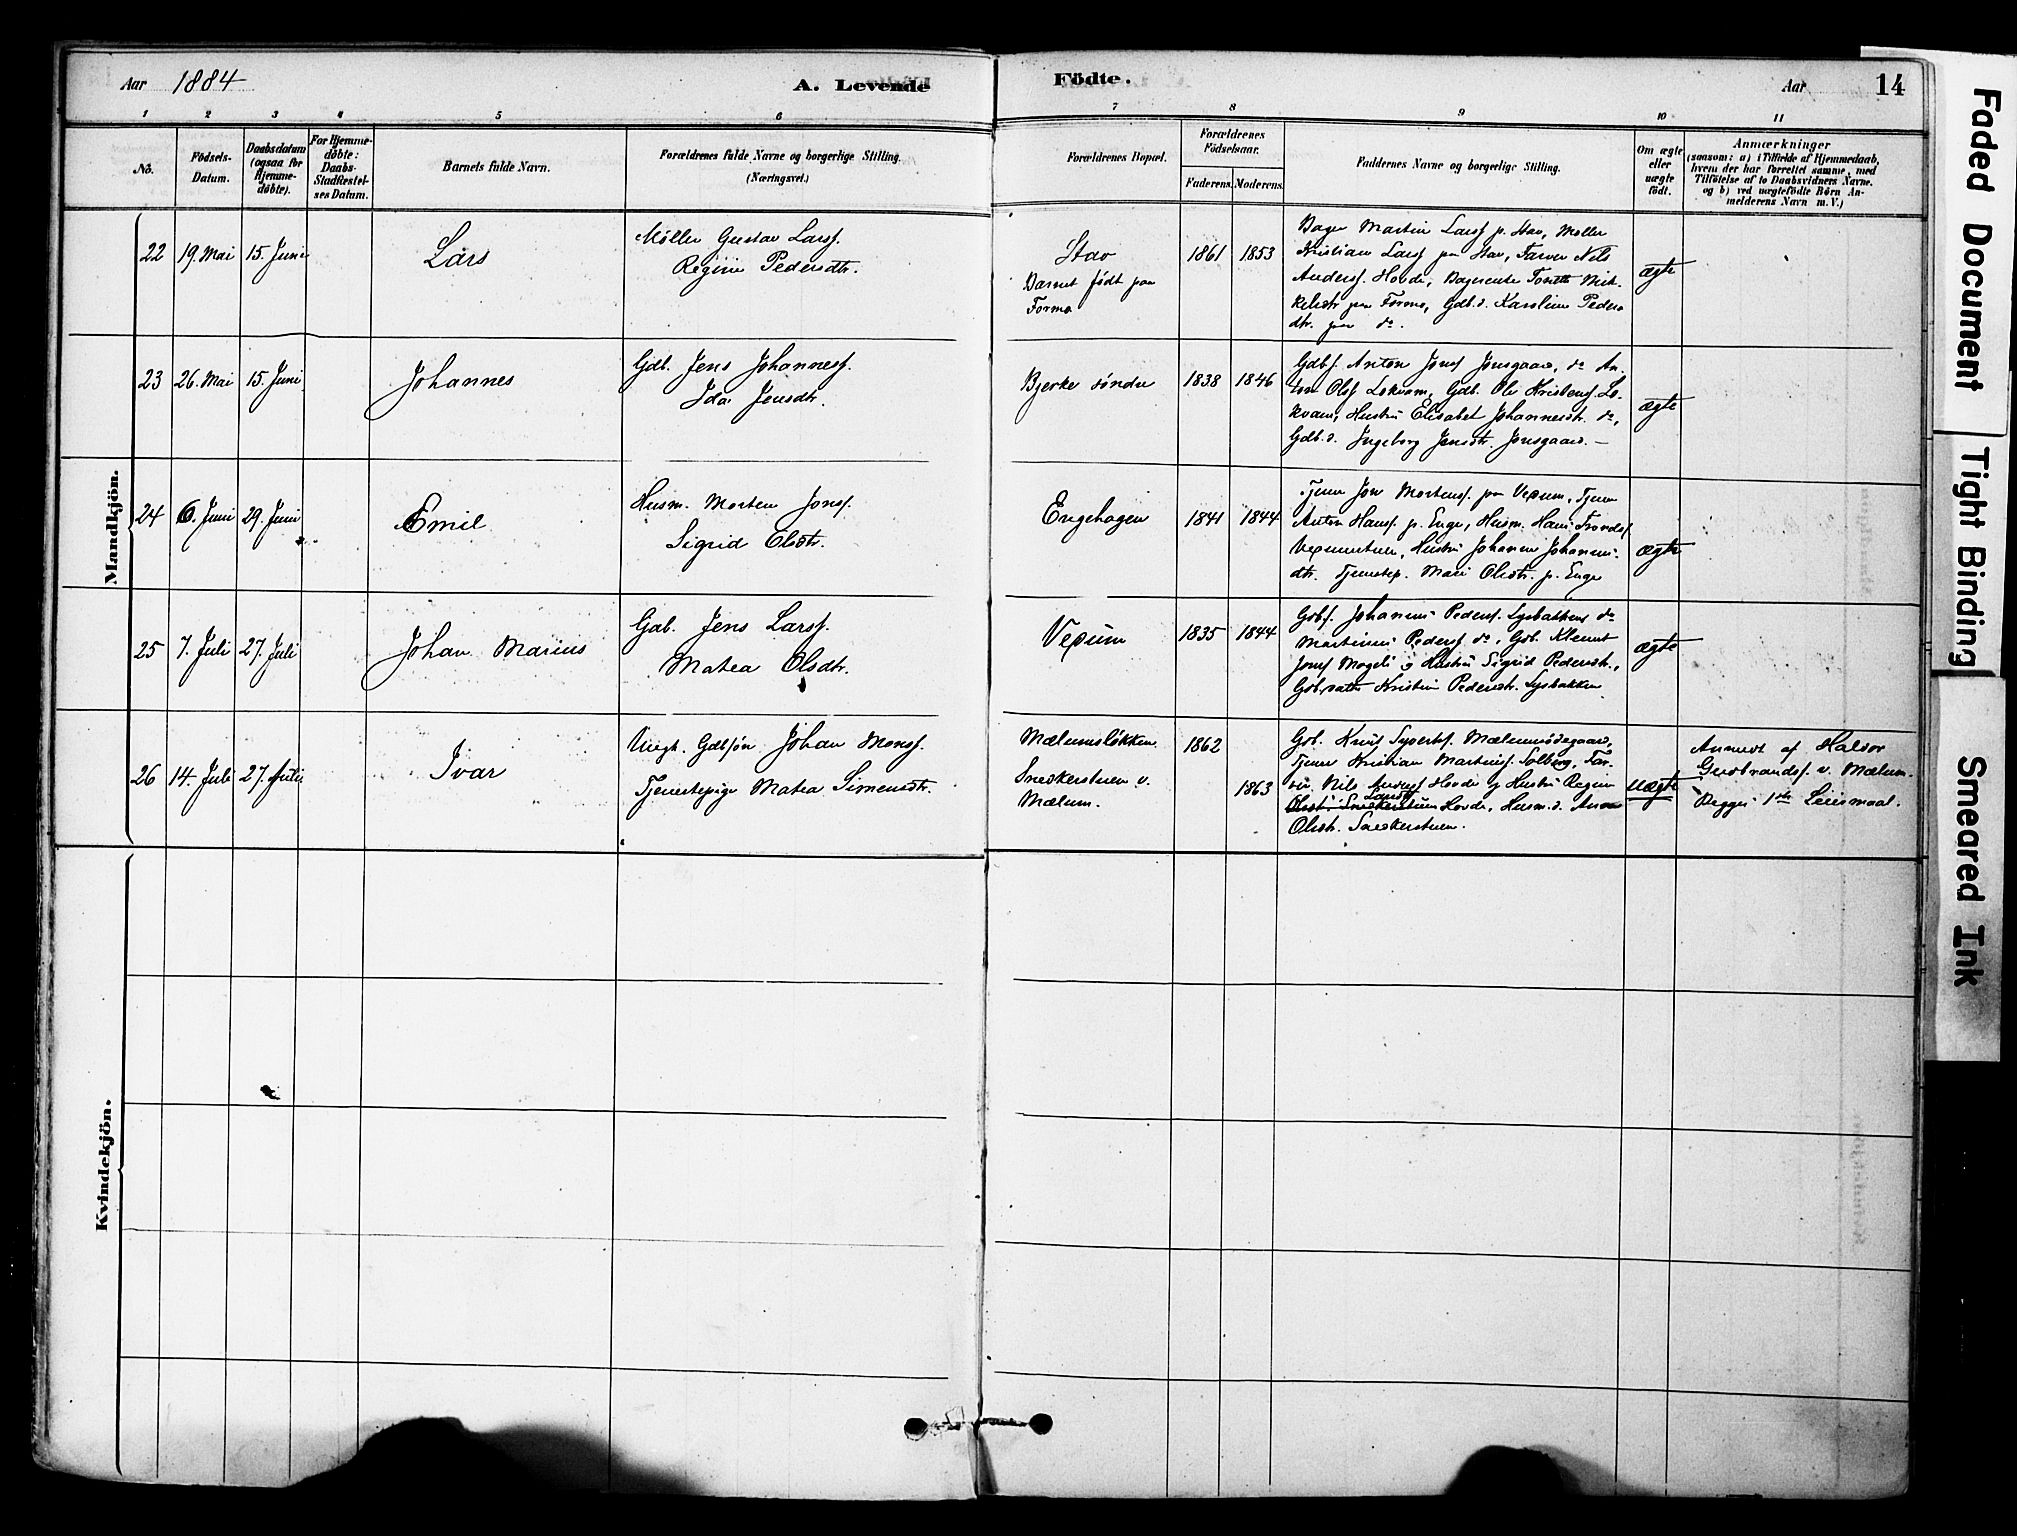 Aar 1884 A. Levende Födte. Aar 14
1 2 3 4 5 6 7 8 9 10 11
No.
Födsels-
Datum.
Daabsdatum
(ogsaa for
Hjemme-
döbte).
For Hjemme-
döbte:
Daabs-
Stadfæstel-
ses Datum.
Barnets fulde Navn.
Forældrenes fulde Navne og borgerlige Stilling.
(Næringsvei.)
Forældrenes Bopæl.
Forældrenes
Födselsaar.
Faderens. Moderens.
Faddernes Navne og borgerlige Stilling.
Om ægte
eller
uægte
födt.
Anmærkninger
(saasom: a) i Tilfælde af Hjemmedaab,
hvem der har forrettet samme, med
Tilföielse af to Daabsvidners Navne.
og b) ved uægtefödte Börn An-
melderens Navn m. V.)
Mandkjön.
22 19. Mai 15. Juni
Lars
Møller Gustav Larsf.
Regine Pedersdtr.
Stav
Barnet født paa
Formo
1861 1853
Bager Martin Larsf p. Stav, Møller
Kristian Larsf paa Stav, Farver Nils
Andersf. Hovde, Bagerenke Mik-
kelsdtr paa Formo, Gdb.d. Karoline Peders
dtr. paa do.
ægte
23 26. Mai 15. Juni
Johannes
Gdb. Jens Johannesf.
Ida Jensdtr.
Bjerke søndre
1838 1846
Gdbf. Anton Jonsf Jonsgaard, do An-
ton Olsf Lokvam, Gdb. Ole Kristensf. Lo-
kvam, Hustru Elisabet Johannesdtr. do,
Gdb.d. Ingeborg Jensdtr. Jonsgaard. —
ægte
24 6. Juni 29. Juni
Emil
Husm. Morten Jonsf.
Sigrid Olsdtr.
Engehagen
1841 1844
Tjener Jon Mortensf. paa Vexum, Tjener
Anton Hansf. p. Enge, Husm. Hans Trondsf
Hustru Johanne Johannes-
dtr. Tjenestep. Mari Olsdtr. p. Enge
ægte
25 7. Juli 27. Juli
Johan Marius
Gdb. Jens Larsf.
Matea Olsdtr.
Vexum
1835 1844
Gdbf. Johannes Pedersf. Lysbakken do
Martinus Pedersf do, Gdb. Klemet
Jonsf Mogeli og Hustru Sigrid Pedersdtr.,
Gdb.datter Kristine Pedersdtr. Lysbakken
ægte
26 14. Juli 27. Juli
Ivar
Ungk. Gdbsøn Johan Monsf.
Tjenestepige Matea Simensdtr.
Mælumsløkken
Snekkerstuen v.
Mælum.
1862
1863
Gdb. Knut Syvertsf. Mælumsødegaard,
Tjener Kristian Martinsf. Solberg, Far-
ver Nils Andersf Hovde og Hustru Regine
Larsdtr
Olsdtr Snekkerstuen Hovde, Husm.d. Anne
Olsdtr. Snekkerstuen.
uægte
Anmeldt af Halvor
Gudbrandsf. v. Mælum.
Begges 1ste Leiermaal.
Kvindekjön.
Faded Document
Tight Binding
Smeared Ink